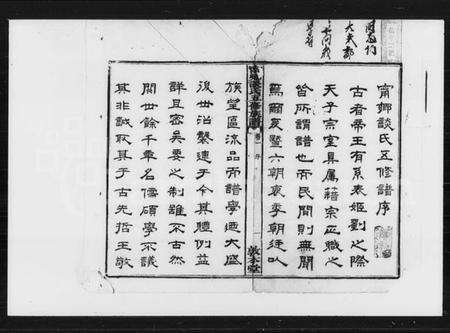 甯鄉談氏五修譜序
古者帝王有系表姬劉之際
天子宗室具屬籍宗正職之
皆所謂譜也而民間則無聞
焉爾及暨六朝衰季朝廷以
卷一
序
敦本堂
族望區流品而譜學迺大盛
後世沿襲逮于今其體例益
詳且密矣要之制雖不古然
閱世餘千年名儒碩學不議
其非誠取其于古先哲王敬